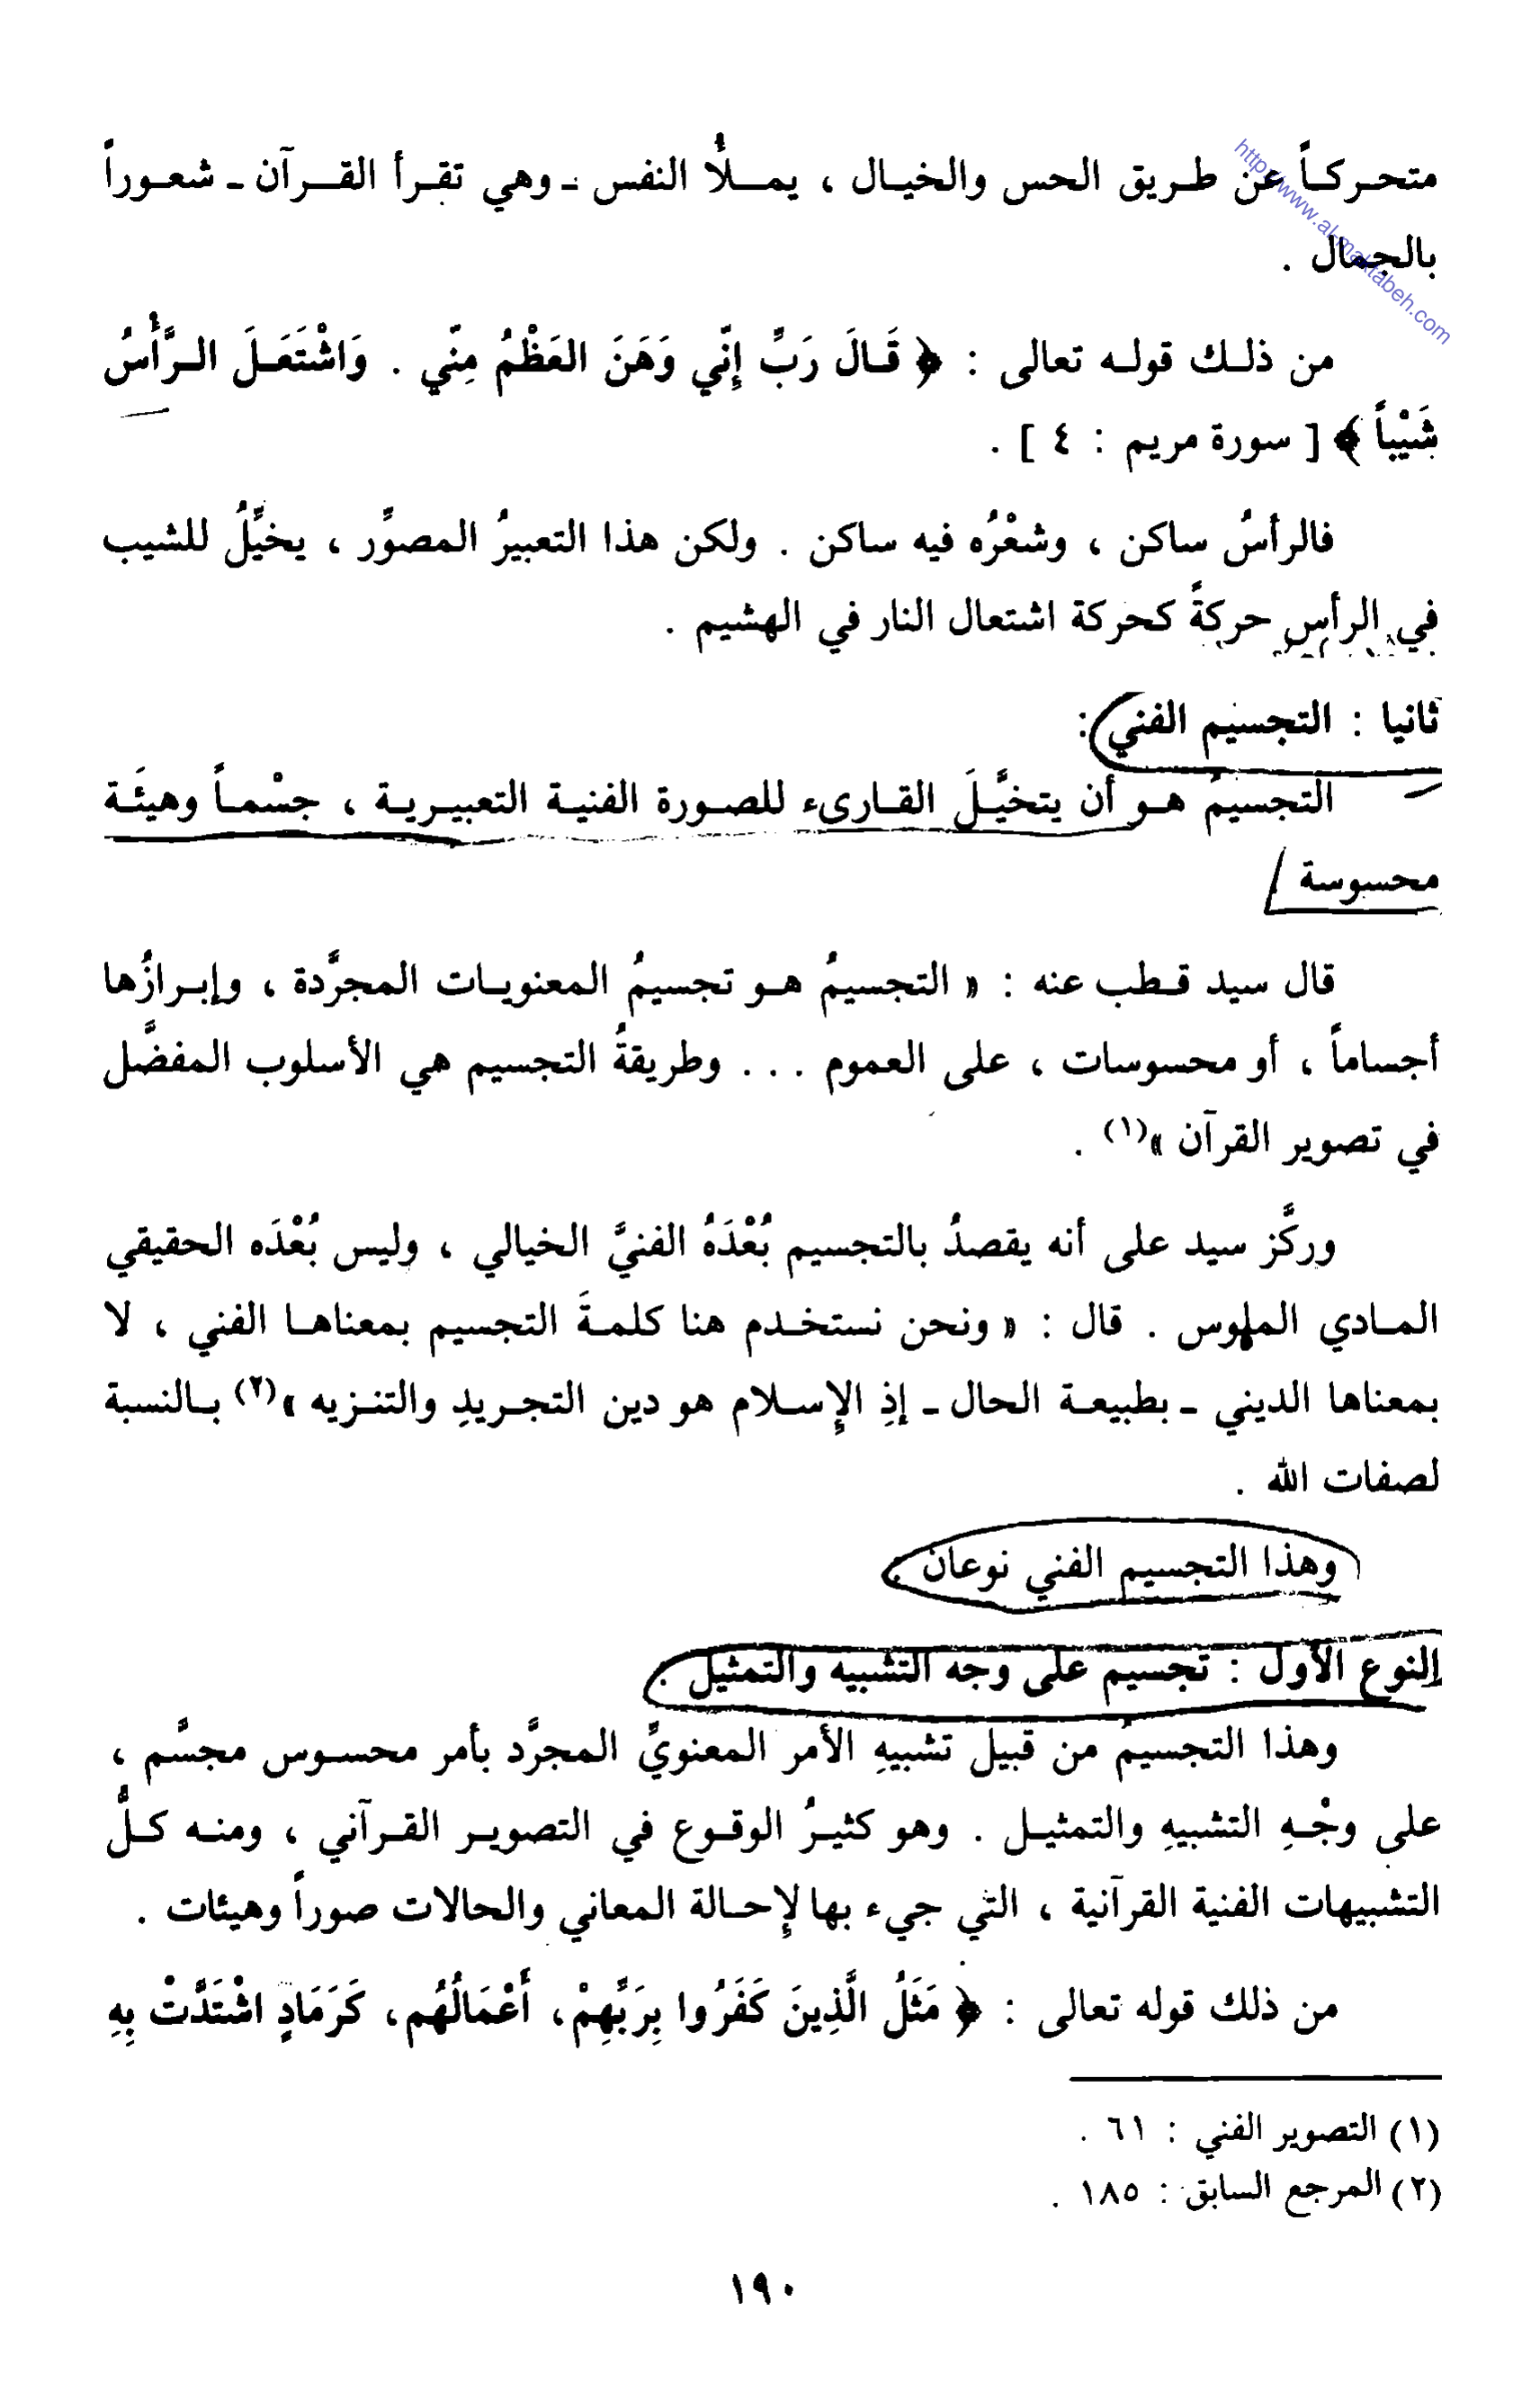 متحركاً عن طريق الحس والخيال ، يملأُ النفس - وهي تقرأ القرآن - شعوراً
بالجمال .
https://www.al-maktabeh.com
من ذلك قوله تعالى : ﴿ قَالَ رَبِّ إِنّي وَهَنَ العَظْمُ مِنّي . وَاشْتَعَلَ الرَّأْسُ
شَيْباً ﴾ [ سورة مريم : ٤ ] .
فالرأسُ ساكن ، وشعْرُه فيه ساكن . ولكن هذا التعبيرُ المصوِّر ، يخيِّلُ للشيب
في الرأس حركةً كحركة اشتعال النار في الهشيم .
ثانيا : التجسيم الفني :
التجسيمُ هو أن يتخيَّلَ القارىء للصورة الفنية التعبيرية ، جسْماً وهيئَة
محسوسة
قال سيد قطب عنه : « التجسيمُ هو تجسيمُ المعنويات المجرَّدة ، وإبرازُها
أجساماً ، أو محسوسات ، على العموم ... وطريقةُ التجسيم هي الأسلوب المفضَّل
في تصوير القرآن »(١) .
وركَّز سيد على أنه يقصدُ بالتجسيم بُعْدَهُ الفنيَّ الخيالي ، وليس بُعْدَه الحقيقي
المادي الملموس . قال : « ونحن نستخدم هنا كلمةَ التجسيم بمعناها الفني ، لا
بمعناها الديني - بطبيعة الحال - إذِ الإِسلام هو دين التجريدِ والتنزيه »(٢) بالنسبة
لصفات الله .
وهذا التجسيم الفني نوعان :
النوع الأول : تجسيم على وجه التشبيه والتمثيل :
وهذا التجسيمُ من قبيل تشبيهِ الأمر المعنويِّ المجرَّد بأمر محسوس مجسَّم ،
على وجْهِ التشبيهِ والتمثيل . وهو كثيرُ الوقوع في التصوير القرآني ، ومنه كلُّ
التشبيهات الفنية القرآنية ، التي جيء بها لإِحالة المعاني والحالات صوراً وهيئات .
من ذلك قوله تعالى : ﴿ مَثَلُ الَّذِينَ كَفَرُوا بِرَبِّهِمْ، أَعْمَالُهُم، كَرَمَادٍ اشْتَدَّتْ بِهِ
(١) التصوير الفني : ٦١ .
(٢) المرجع السابق : ١٨٥ .
١٩٠